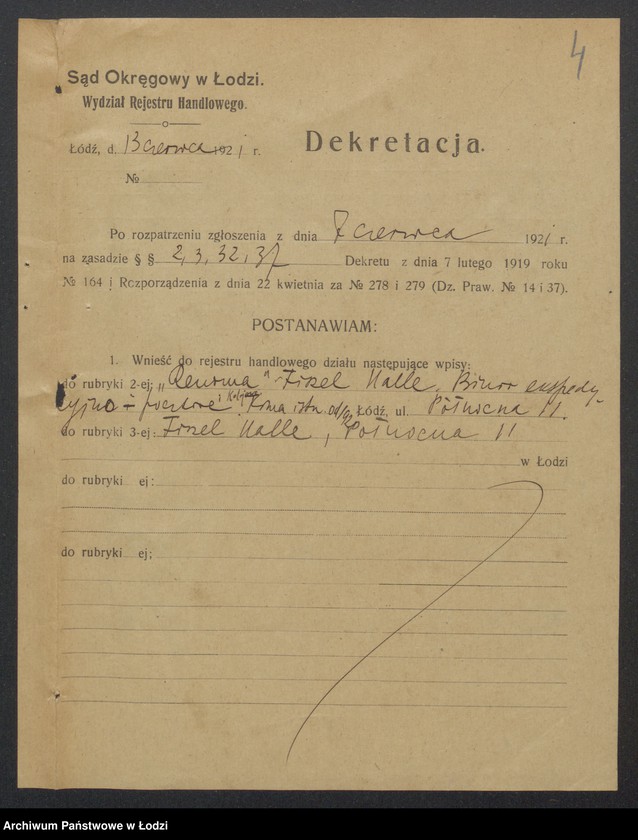 4
Sąd Okręgowy w Łodzi.
Wydział Rejestru Handlowego.
Łódź, d. 13 czerwca 1921 r.
Dekretacja.
№
Po rozpatrzeniu zgłoszenia z dnia 7 czerwca 1921 r.
na zasadzie § § 2, 3, 32, 37 Dekretu z dnia 7 lutego 1919 roku
№ 164 i Rozporządzenia z dnia 22 kwietnia za № 278 i 279 (Dz. Praw. № 14 i 37).
POSTANAWIAM:
1. Wnieść do rejestru handlowego działu następujące wpisy:
do rubryki 2-ej: " - Fiszel Halle, Biuro ekspedy-
cyjno - i Firma istn. od Łódź, ul. Północna 11.
do rubryki 3-ej: Fiszel Halle, Północna 11
w Łodzi
do rubryki ej:
do rubryki ej:
Archiwum Państwowe w Łodzi